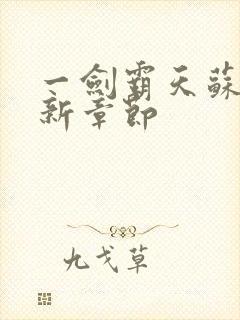 一劍霸天蘇
新章節
九戈草